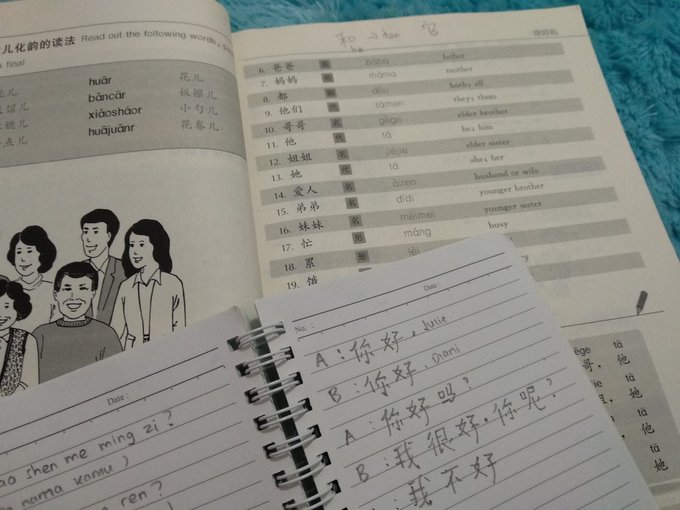 儿化韵的读法 Read out the following words,
final
儿 huār 花儿
馆儿 bāncār 板擦儿
儿 xiǎosháor 小勺儿
点儿 huājuǎnr 花卷儿
和 → dan 它
he
你好吗
6. 爸爸 名 bàba father
7. 妈妈 名 māma mother
8. 都 副 dōu both; all
9. 他们 代 tāmen they; them
10. 哥哥 名 gēge elder brother
11. 他 代 tā he; him
12. 姐姐 名 jiějie elder sister
13. 她 代 tā she; her
14. 爱人 名 àiren husband or wife
15. 弟弟 名 dìdi younger brother
16. 妹妹 名 mèimei younger sister
17. 忙 形 máng busy
18. 累 形 lèi
19. 饿
tā
哥，他
tā
她
tā
他
tā
她
Date :
shen me ming zi ?
nama kamu )
ren ?
No. : Date :
A : 你好, Julie
B : 你好. Diani
A : 你好吗?
B : 我很好. 你呢?
我不好